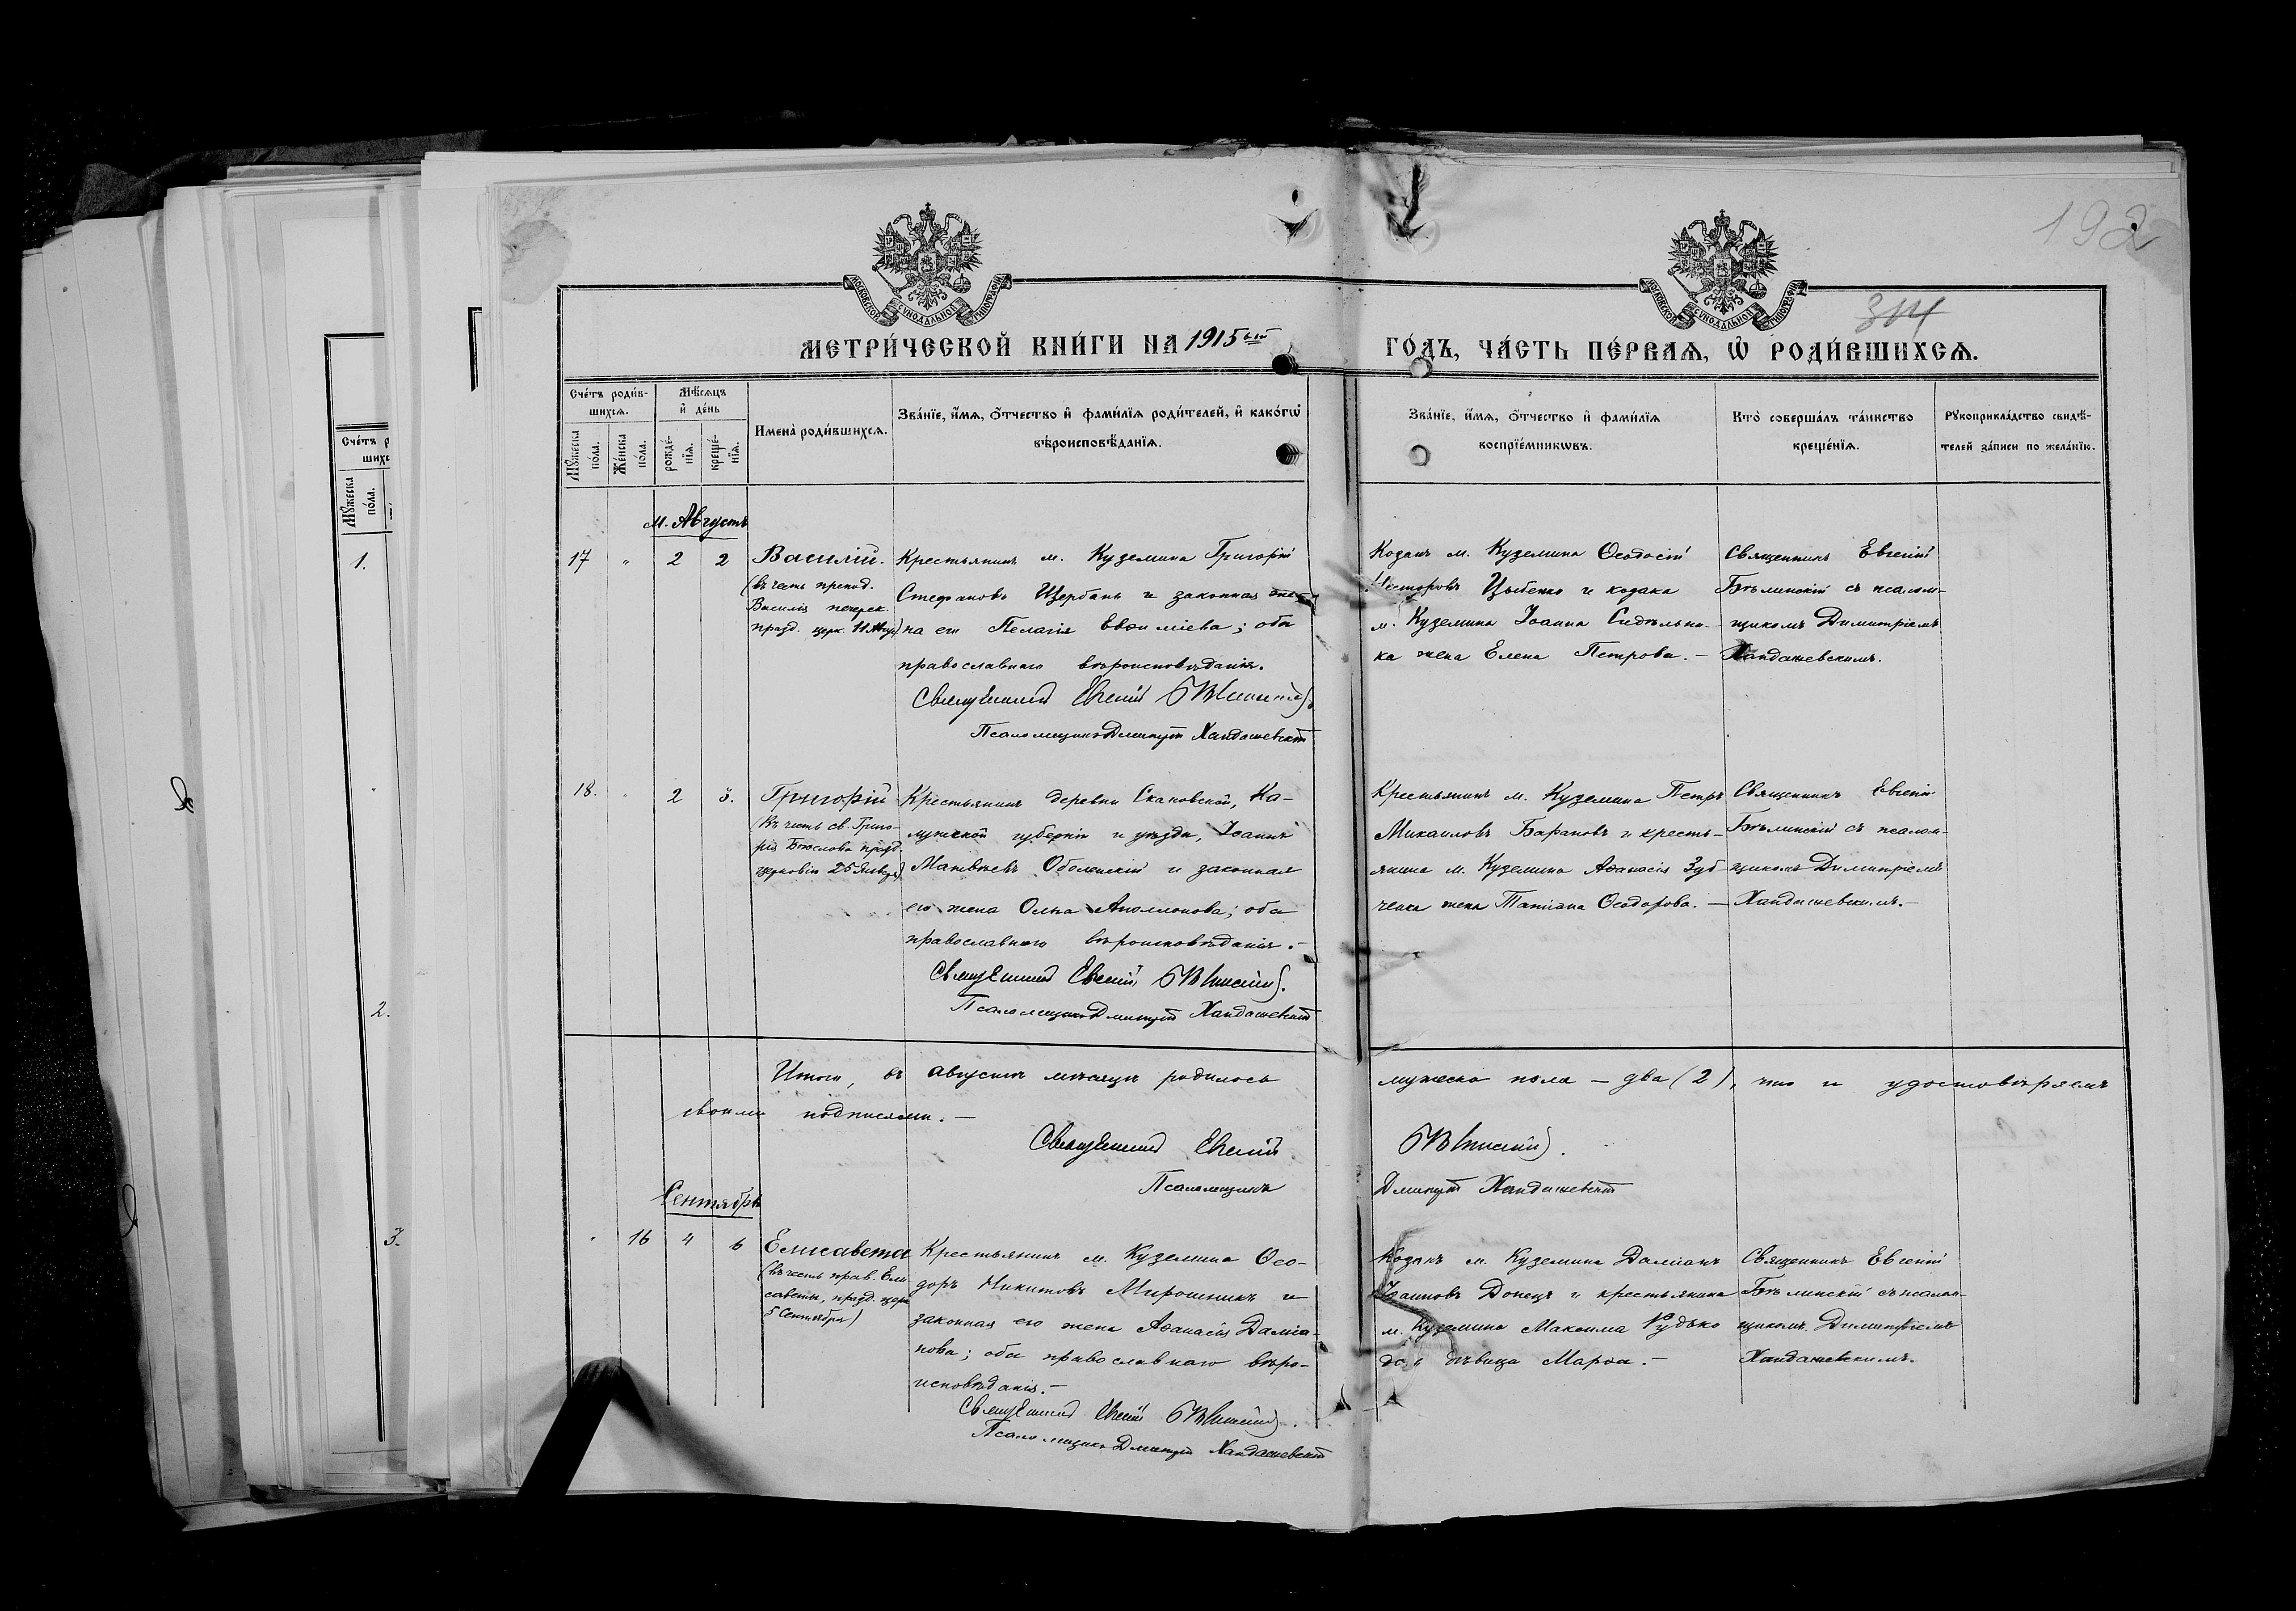 192
314
МОСКОВСКОЙ СѴНОДАЛЬНОЙ ТИПОГРАФІИ
МОСКОВСКОЙ СѴНОДАЛЬНОЙ ТИПОГРАФІИ
МЕТРИ́ЧЕСКОЙ КНИ́ГИ НА 1915 ый
ГО́ДЪ, ЧА́СТЬ ПЕ́РВАѦ, Ѡ҆ РОДИ́ВШИХСѦ.
Сче́тъ роди́в-
шихсѧ.
Мꙋ́жеска
по́ла.
Же́нска
по́ла.
Мѣ́сѧцъ
и҆ де́нь
рожде́-
нїѧ.
креще́-
нїѧ.
Имена̀ роди́вшихсѧ.
Зва́нїе, и҆́мѧ, о҆́тчество и҆ фами́лїѧ роди́телей, и҆ како́гѡ
вѣроисповѣ́данїѧ.
Зва́нїе, и҆́мѧ, о҆́тчество и҆ фами́лїѧ
воспрїе́мникѡвъ.
Кто̀ соверша́лъ та́инство
креще́нїѧ.
Рꙋкоприкла́дство свидѣ́-
телей за́писи по жела́нїю.
Мꙋ́жеска
по́ла.
1.
2.
3.
м. Августъ
17 " 2 2
Василій.
(въ честь препод.
Василія печерск.
празд. церк. 11 Авгу.)
Крестьянинъ м. Куземина Григорій
Стефановъ Щербань и законная же-
на его Пелагія Евѳиміева; оба
православнаго вѣроисповѣданія.
Священникъ Евгеній Бѣлинскій.
Псаломщикъ Димитрій Хандажевскій
Козакъ м. Куземина Ѳеодосій
Несторовъ Цыбенко и козака
м. Куземина Іоанна Сидѣльни-
ка жена Елена Петрова. –
Священникъ Евгеній
Бѣлинскій съ псалом-
щикомъ Димитріемъ
Хандажевскимъ.
18. " 2 3.
Григорій
(въ честь св. Григо-
рія Богослова празд.
церковію 25 Января)
Крестьянинъ деревни Скаковской, Ка-
лужской губерніи и уѣзда, Іоаннъ
Матвѣевъ Оболенскій и законная
его жена Ольга Аполлонова; оба
православнаго вѣроисповѣданія. –
Священникъ Евгеній Бѣлинскій.
Псаломщикъ Димитрій Хандажевскій
Крестьянинъ м. Куземина Петръ
Михаиловъ Барановъ и кресть-
янина м. Куземина Аѳанасія Зуб-
ченка жена Татіана Ѳеодорова. –
Священникъ Евгеній
Бѣлинскій съ псалом-
щикомъ Димитріемъ
Хандажевскимъ. –
Итого, въ августѣ мѣсяцѣ родилось мужеска пола – два (2), что и удостовѣряемъ
своими подписями. –
Священникъ Евгеній Бѣлинскій.
Псаломщикъ Димитрій Хандажевскій
Сентябрь
" 16 4 6
Елисавета
(въ честь прав. Ели-
саветы, празд. церк.
5 Сентября)
Крестьянинъ м. Куземина Ѳео-
доръ Никитовъ Мирошникъ и
законная его жена Аѳанасія Даміа-
нова; оба православнаго вѣро-
исповѣданія. –
Священникъ Евгеній Бѣлинскій.
Псаломщикъ Димитрій Хандажевскій
Козакъ м. Куземина Даміанъ
Іоанновъ Донецъ и крестьянина
м. Куземина Максима Рудько
дѣвица Марѳа. –
Священникъ Евгеній
Бѣлинскій съ псалом-
щикомъ Димитріемъ
Хандажевскимъ.